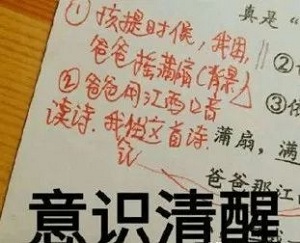 ①孩提时候，我困，
爸爸摇蒲扇(背景)
②爸爸用江西口音
读诗.我住这首诗.
记
真是“
②
③依
蒲扇，满
爸爸那江
意识清醒